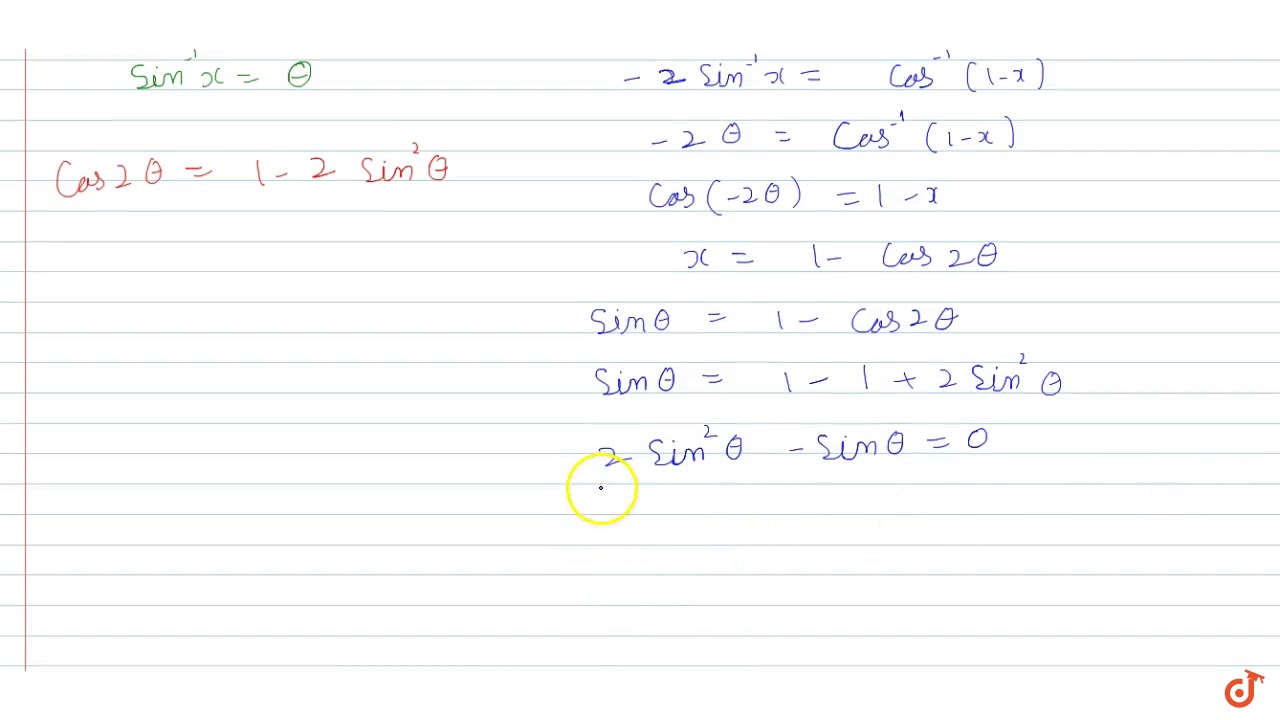 Sin⁻¹x = θ
Cos2θ = 1 - 2 Sin²θ
- 2 Sin⁻¹x = Cos⁻¹(1-x)
- 2θ = Cos⁻¹(1-x)
Cos(-2θ) = 1 - x
x = 1 - Cos2θ
Sinθ = 1 - Cos2θ
Sinθ = 1 - 1 + 2 Sin²θ
2 Sin²θ - Sinθ = 0